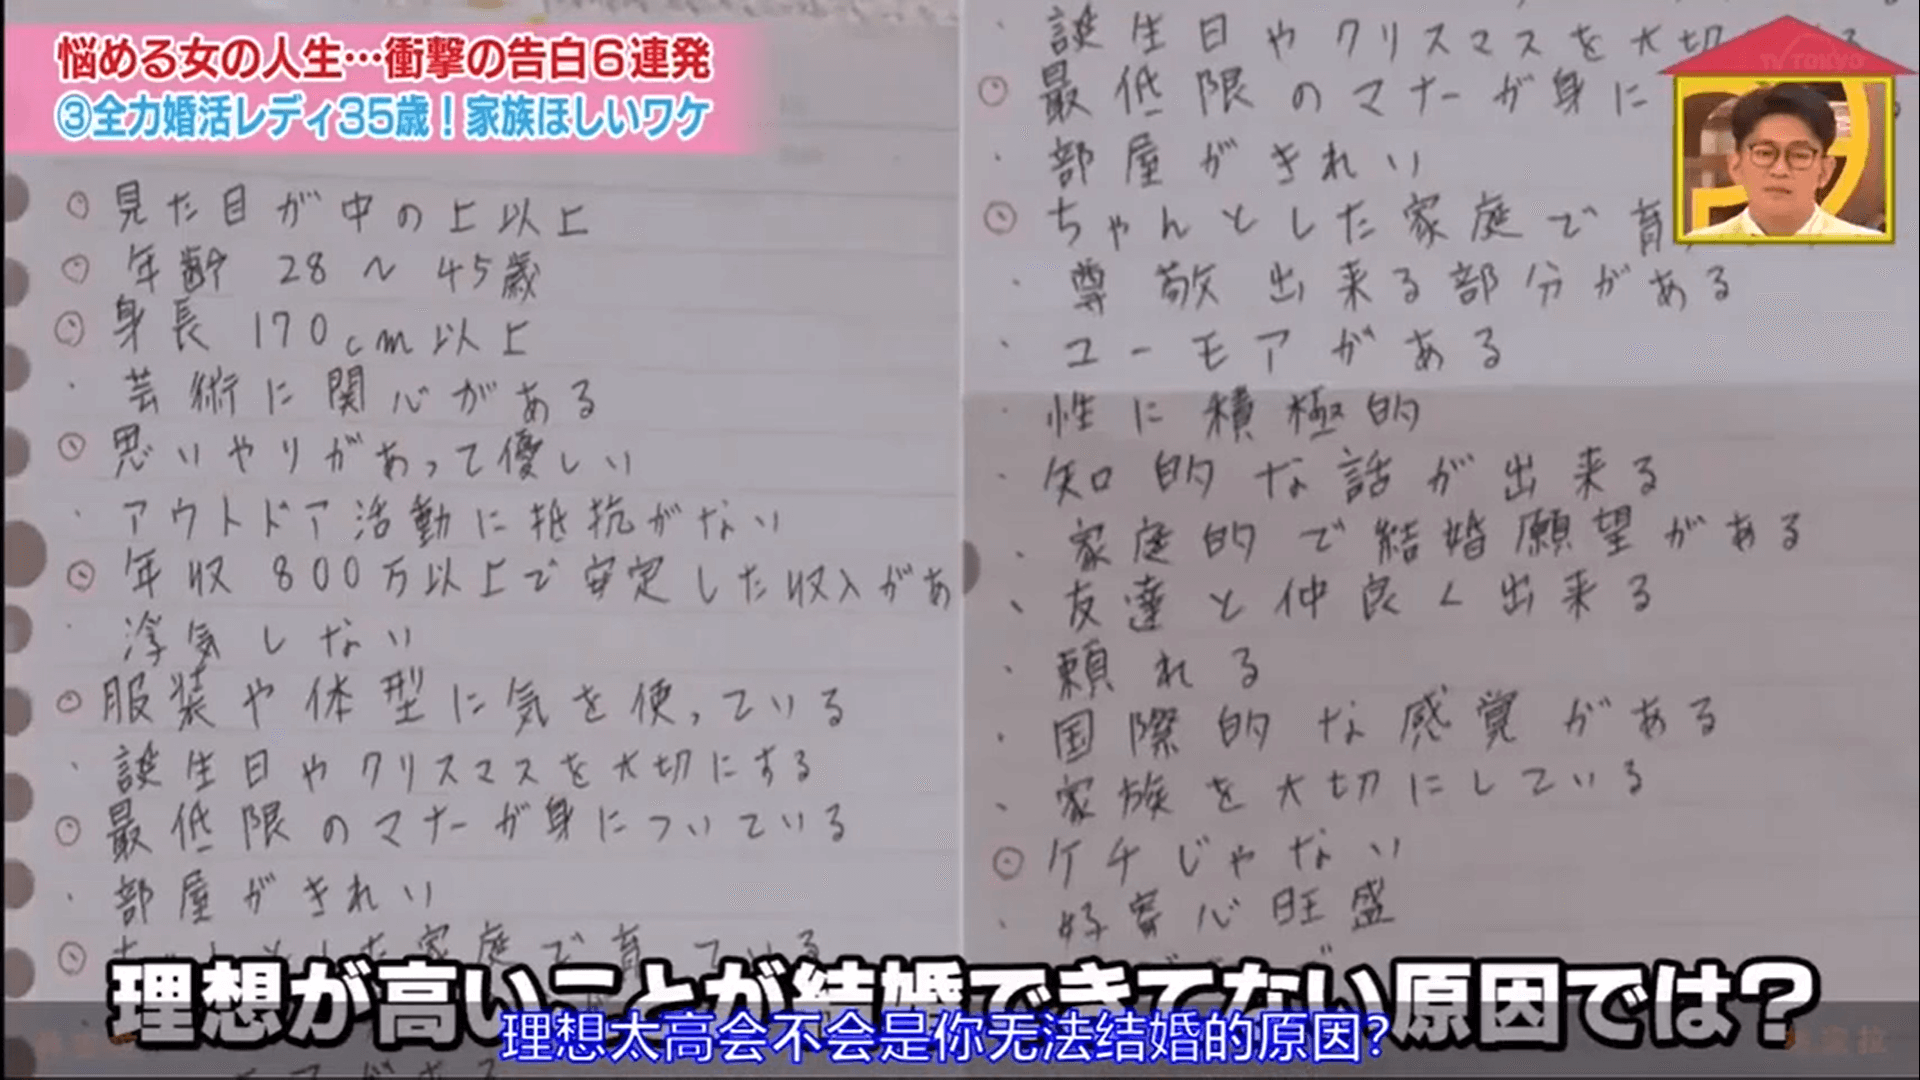 悩める女の人生…衝撃の告白6連発
③全力婚活レディ35歳！家族ほしいワケ
TV TOKYO
◎見た目が中の上以上
◎年齢 28～45歳
◎身長 170cm以上
・芸術に関心がある
◎思いやりがあって優しい
・アウトドア活動に抵抗がない
◎年収 800万以上で安定した収入があ
・浮気しない
◎服装や体型に気を使っている
・誕生日やクリスマスを大切にする
◎最低限のマナーが身についている
・部屋がきれい
家庭で育っている
・誕生日やクリスマスを大切
◎最低限のマナーが身に
・部屋がきれい
◎ちゃんとした家庭で育
・尊敬出来る部分がある
・ユーモアがある
・性に積極的
・知的な話が出来る
・家庭的で結婚願望がある
・友達と仲良く出来る
・頼れる
・国際的な感覚がある
・家族を大切にしている
◎ケチじゃない
・好奇心旺盛
理想が高いことが結婚できてない原因では？
理想太高会不会是你无法结婚的原因?